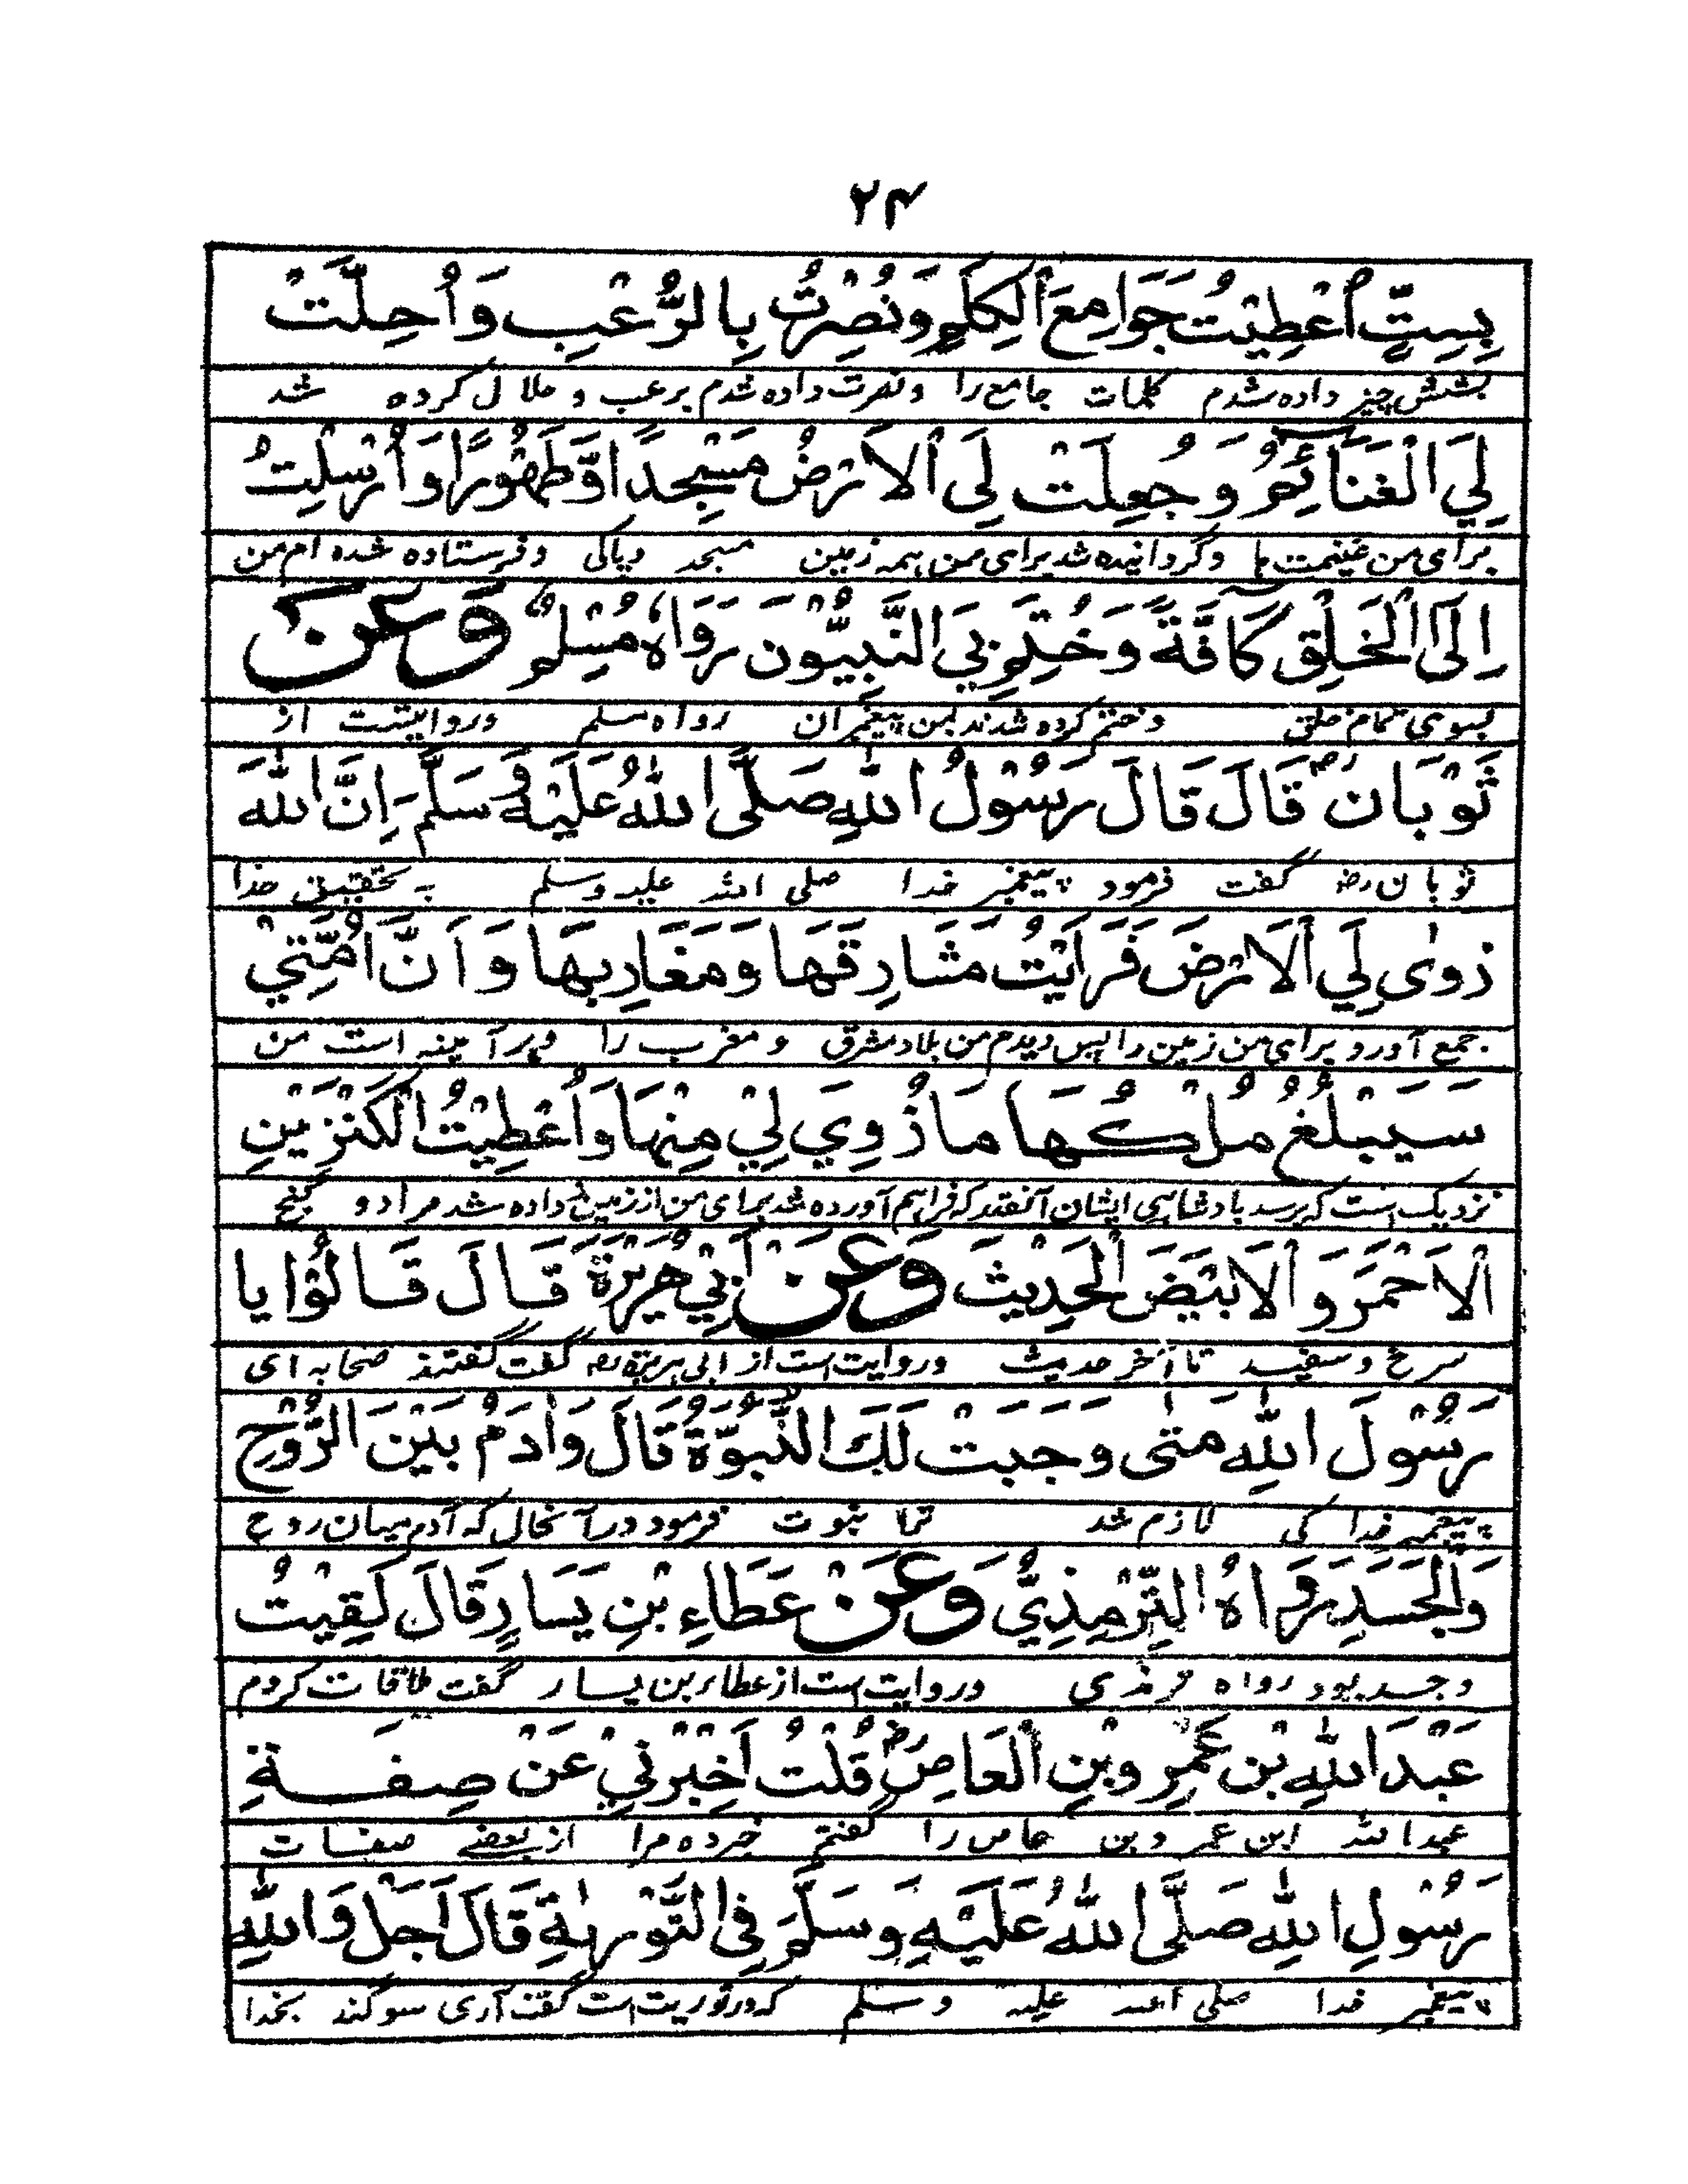 ۲۴
بِسِتٍّ اُعْطِيْتُ جَوَامِعَ الْكَلِمِ وَنُصِرْتُ بِالرُّعْبِ وَاُحِلَّتْ
بشش چیز داده شدم کلمات جامع را ونصرت داده شدم برعب و حلال کرده شد
لِيَ الْغَنَآئِمُ وَجُعِلَتْ لِيَ الْاَرْضُ مَسْجِدًا وَّطَهُوْرًا وَاُرْسِلْتُ
برای من غنیمت ها وگردانیده شد برای من همه زمین مسجد وپاکی وفرستاده شده ام من
اِلَى الْخَلْقِ كَآفَّةً وَخُتِمَ بِيَ النَّبِيُّوْنَ رَوَاهُ مُسْلِمٌ وَعَنْ
بسوی تمام خلق وختم کرده شدند بمن پیغمبران رواه مسلم وروایتست از
ثَوْبَانَ رض قَالَ قَالَ رَسُوْلُ اللّٰهِ صَلَّى اللّٰهُ عَلَيْهِ وَسَلَّمَ اِنَّ اللّٰهَ
ثوبان رض گفت فرمود پیغمبر خدا صلی الله علیه وسلم به تحقیق خدا
زوٰى لِيَ الْاَرْضَ فَرَاَيْتُ مَشَارِقَهَا وَمَغَارِبَهَا وَاَنَّ اُمَّتِيْ
جمع آورد برای من زمین را پس دیدم من بلاد مشرق و مغرب را وهر آئینه است من
سَيَبْلُغُ مُلْكُهَا مَا زُوِيَ لِيْ مِنْهَا وَاُعْطِيْتُ الْكَنْزَيْنِ
نزدیک است که برسد بادشاهی ایشان آنقدر که فراهم آورده شد برای من از زمین داده شد مرا دو گنج
الْاَحْمَرَ وَالْاَبْيَضَ الْحَدِيْثَ وَعَنْ اَبِيْ هُرَيْرَةَ قَالَ قَالُوْا يَا
سرخ و سفید تا آخر حدیث وروایت است از ابی هریره رض گفت گفتند صحابه ای
رَسُوْلَ اللّٰهِ مَتٰى وَجَبَتْ لَكَ النُّبُوَّةُ قَالَ وَاٰدَمُ بَيْنَ الرُّوْحِ
پیغمبر خدا کی لازم شد ترا نبوت فرمود درآنحال که آدم میان روح
وَالْجَسَدِ رَوَاهُ التِّرْمِذِيُّ وَعَنْ عَطَاءِ بْنِ يَسَارٍ قَالَ لَقِيْتُ
وجسد بود رواه ترمذی وروایت است از عطاء بن یسار گفت ملاقات کردم
عَبْدَ اللّٰهِ بْنَ عَمْرِو بْنِ الْعَاصِ رض قُلْتُ اَخْبِرْنِيْ عَنْ صِفَةِ
عبد الله ابن عمر وبن عاص را گفتم خبر ده مرا از بعضے صفات
رَسُوْلِ اللّٰهِ صَلَّى اللّٰهُ عَلَيْهِ وَسَلَّمَ فِي التَّوْرٰىةِ قَالَ اَجَلْ وَاللّٰهِ
پیغمبر خدا صلی الله علیه وسلم که در توریت است گفت آری سوگند بخدا